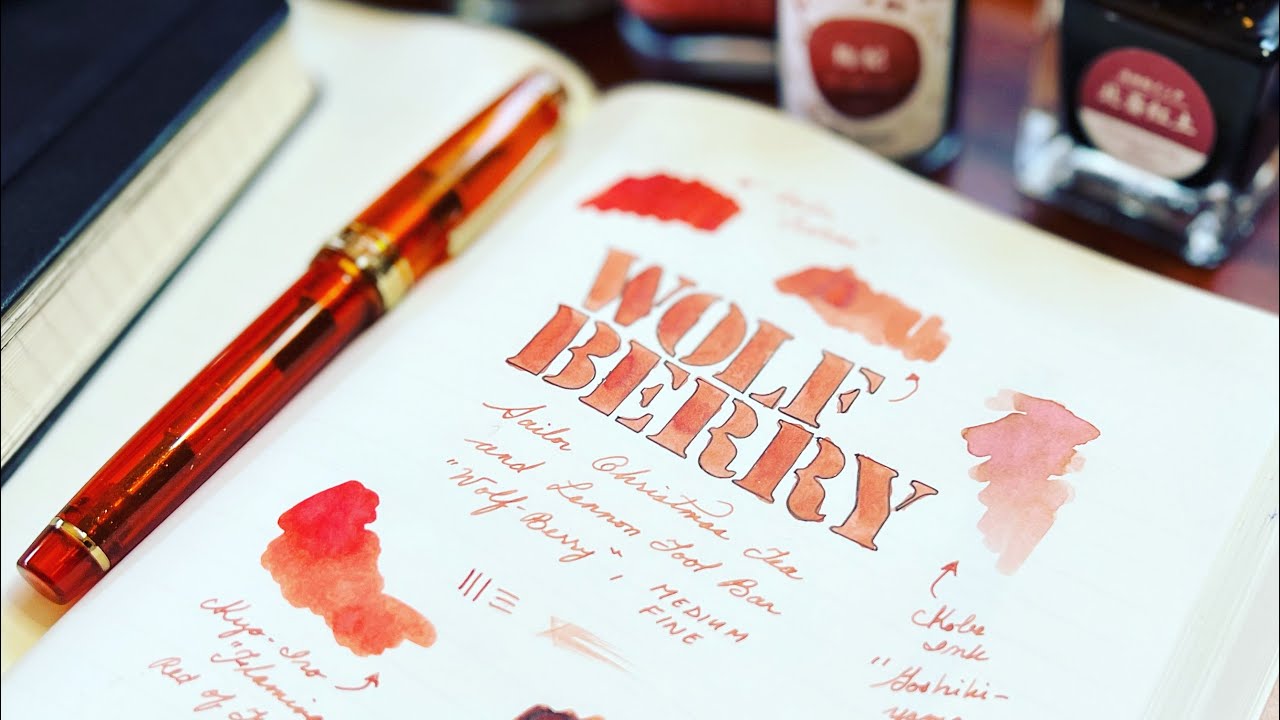 WOLF
BERRY
Sailor Christmas Tea
and Lennon Tool Bar
"Wolf-Berry",
MEDIUM
FINE
Kyo-Iro
"Flaming
Red of
Kobe
Ink
"Goshiki-
yama